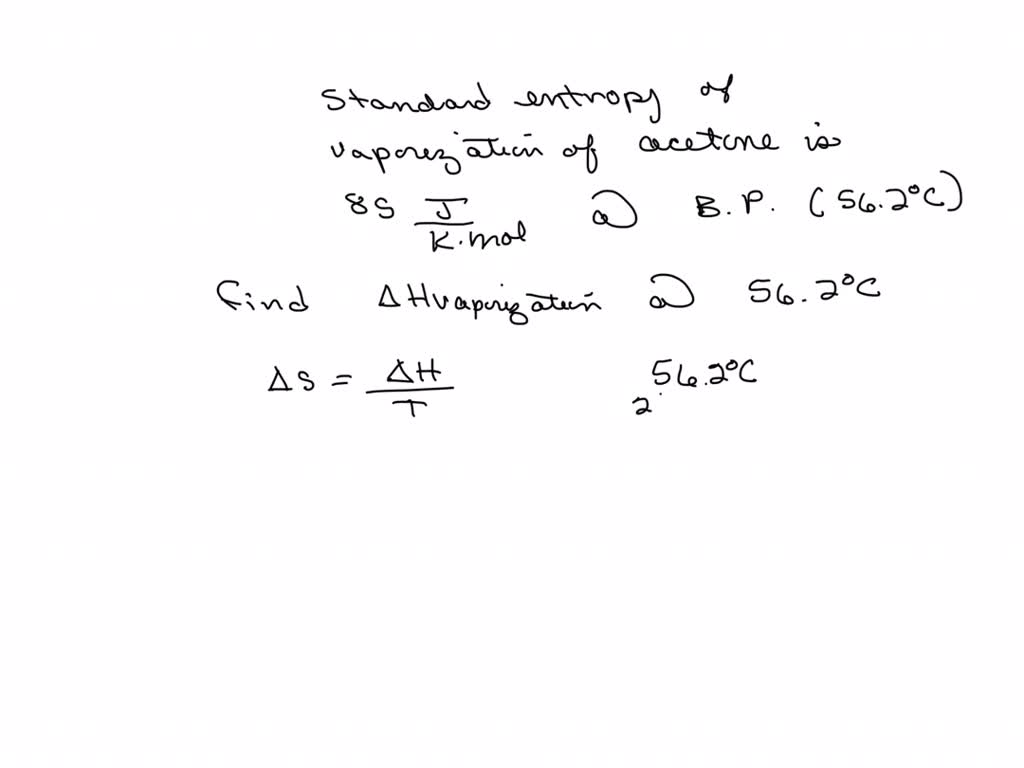 Standard entropy of
vaporization of acetone is
85 J/K·mol @ B.P. (56.2°C)
Find ΔHvaporization @ 56.2°C
ΔS = ΔH/T 56.2°C
2